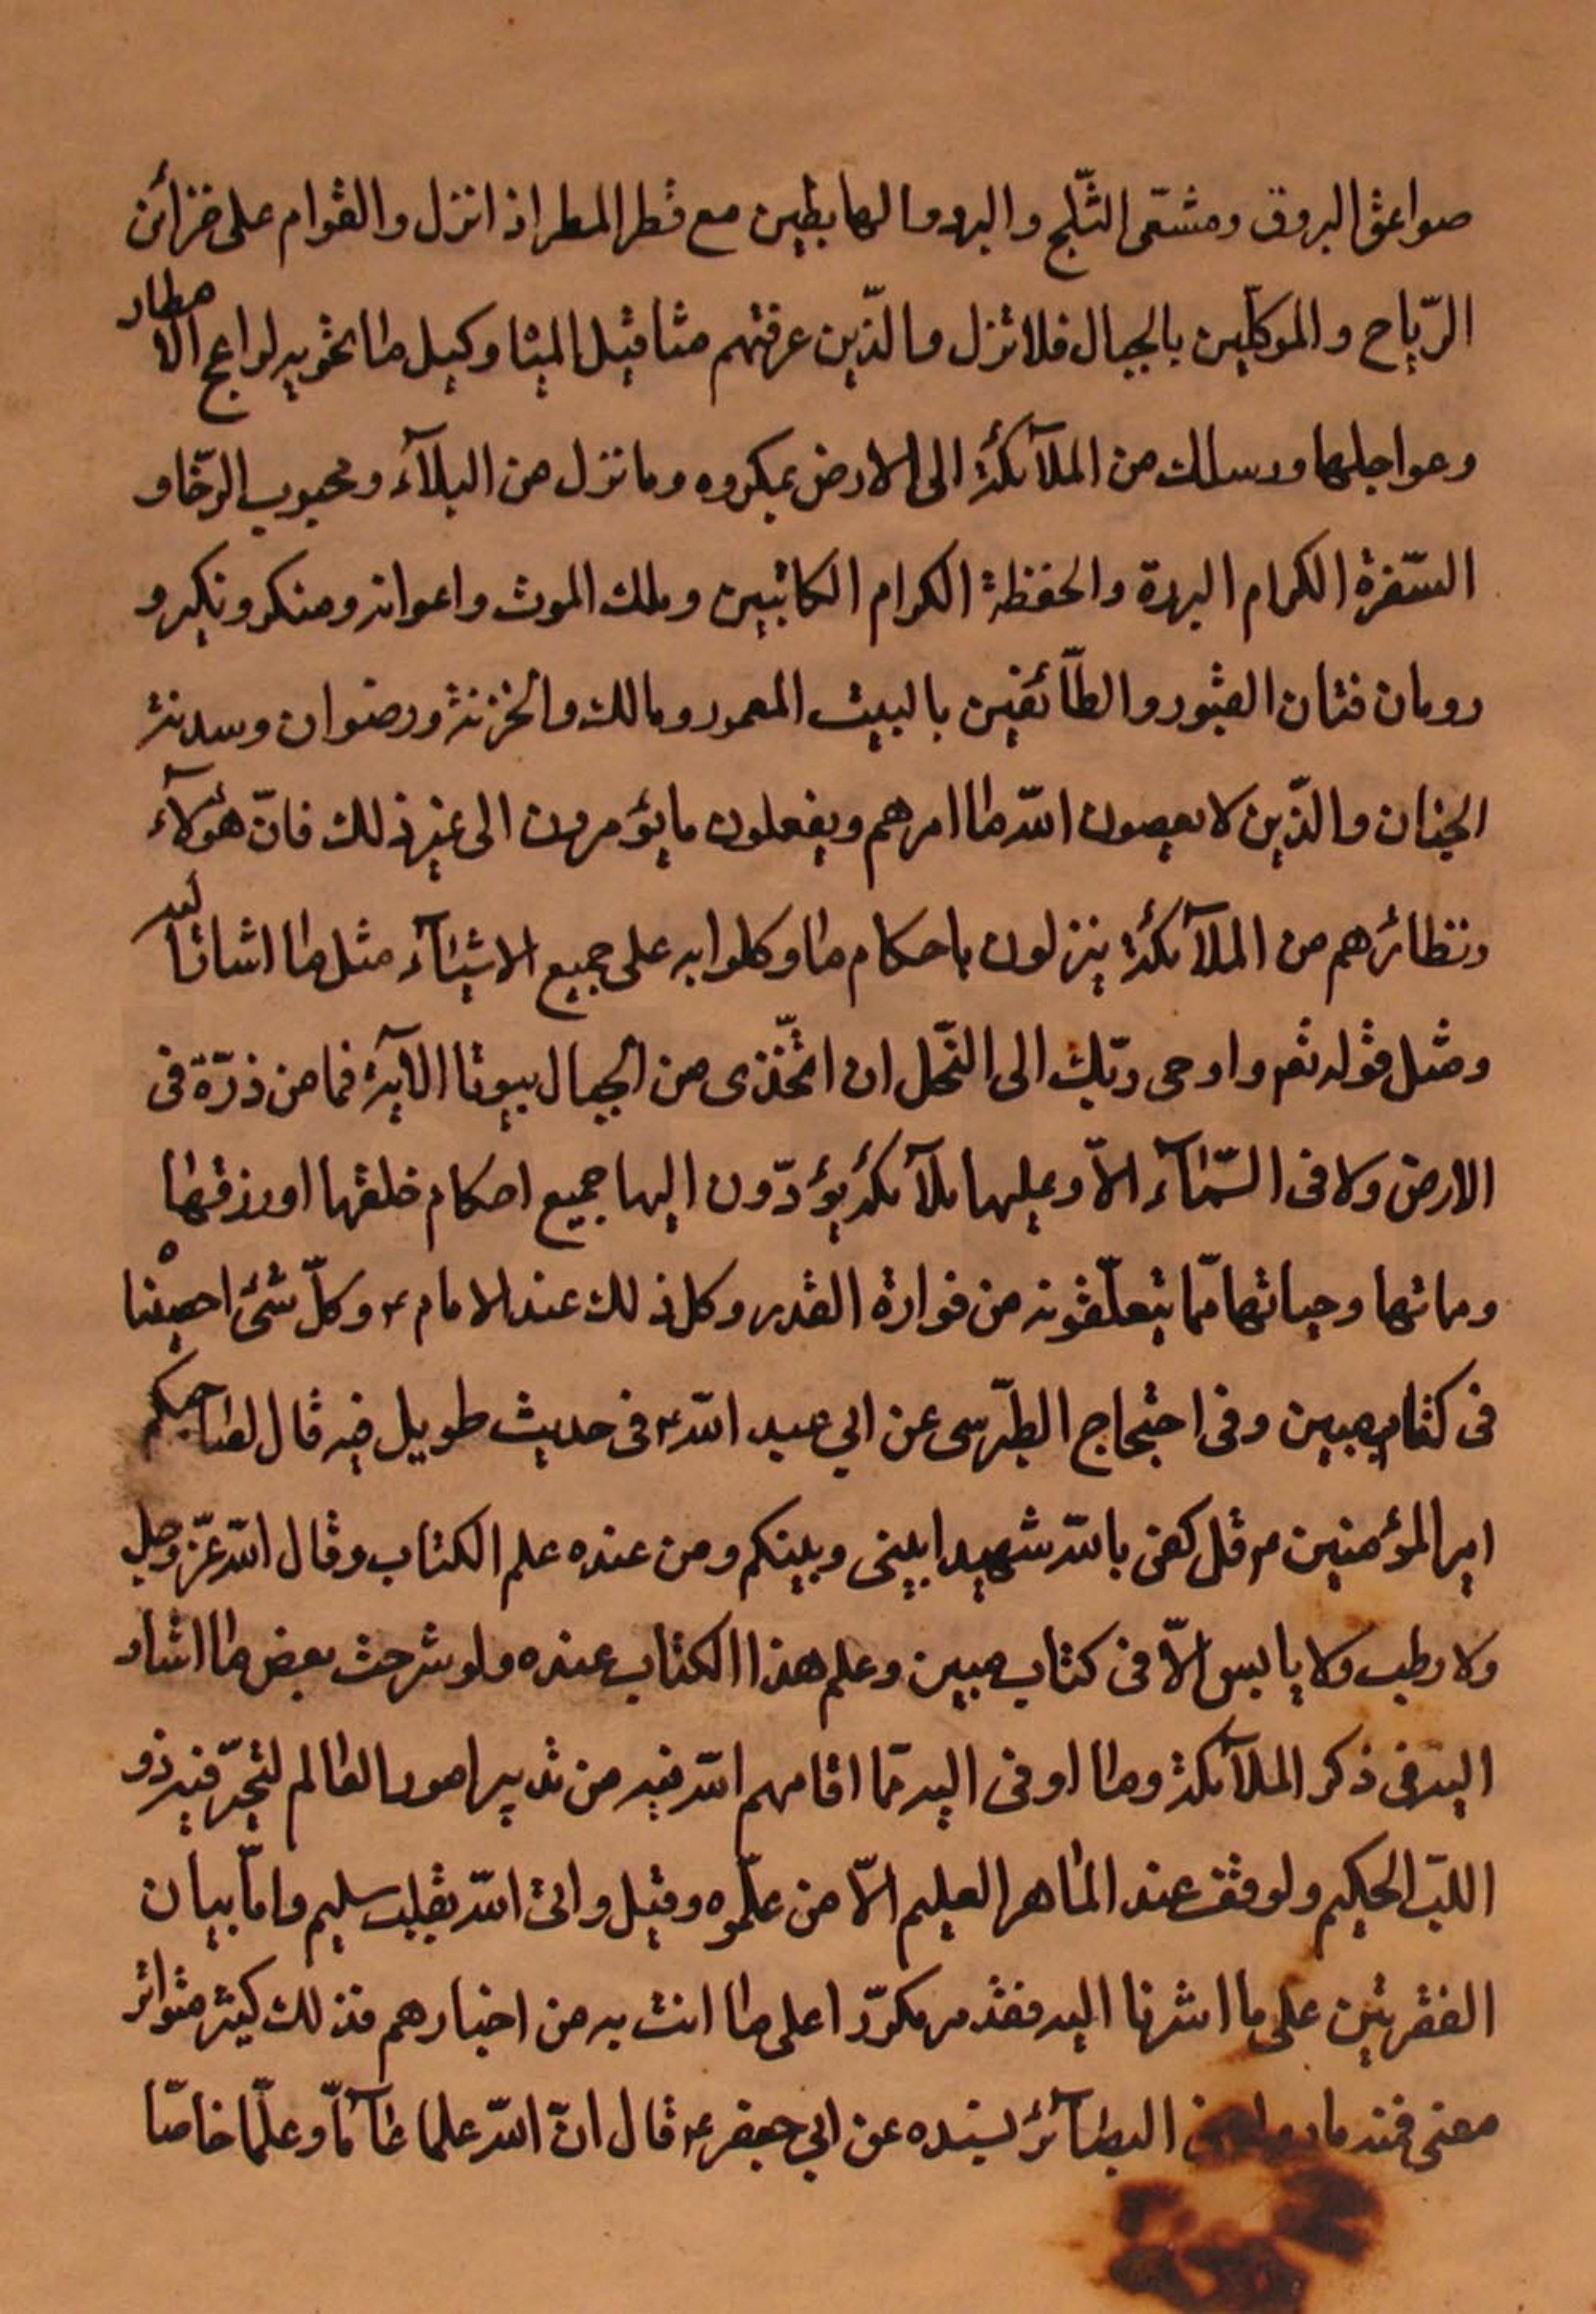 صواعق البروق ومشيّعى الثّلج والبرد والهابطين مع قطر المطر اذا نزل والقوام على خزائن
الرّياح والموكلّين بالجبال فلا تزل والّذين عرفتهم مثاقيل المياه وكيل ما تحويه لواعج الامطار
وعواجلها ورسلك من الملآئكة الى الارض بمكروه وما نزل من البلآء ومحبوب الرّخاو
السّفرة الكرام البررة والحفظة الكرام الكاتبين وملك الموت واعوانه ومنكر ونكير و
رومان فتان القبور والطآئفين بالبيت المعمور ومالك والخزنة ورضوان وسدنة
الجنان والّذين لا يعصون اللّه ما امرهم ويفعلون ما يؤمرون الى غير ذلك فانّ هؤلآء
ونظائرهم من الملآئكة ينزلون باحكام ما وكلوا به على جميع الاشيآء مثل ما اشانا ليه
ومثل قوله تعم واوحى ربّك الى النّحل ان اتّخذى من الجبال بيوتا الآية فما من ذرّة فى
الارض ولا فى السّمآء الاّ وعليها ملآئكة يؤدّون اليها جميع احكام خلقها اورزقها
ومماتها وحياتها ممّا يتعلّقونه من فوارة القدر وكل ذلك عند الامام ع وكلّ شئ احصيناه
فى كتاب مبين وفى احتجاج الطبّرسى عن ابي عبد اللّه ع فى حديث طويل فيه قال لصاحبكم
امير المؤمنين ع قل كفى باللّه شهيدا بينى وبينكم ومن عنده علم الكتاب وقال اللّه عزّ وجل
ولا رطب ولا يابس الاّ فى كتاب مبين وعلم هذا الكتاب عنده ولو شرحت بعض ما اشار
اليه فى ذكر الملآئكة وما اوفى اليه ممّا اقامهم اللّه فيه من تدبير امور العالم لتحيّر فيه ذو
اللبّ الحكيم ولوقف عند الماهر العليم الاّ من علّموه وقيل واتى اللّه بقلب سليم وامّا بيان
الفقرتين على ما اشرنا اليه فقد مر مكرّرا على ما انت به من اخبارهم فذلك كثير متواتر
معنى فمنه ما البصآئر بسنده عن ابي جعفر ع قال انّ اللّه علما عآمّا وعلّما خاصّا